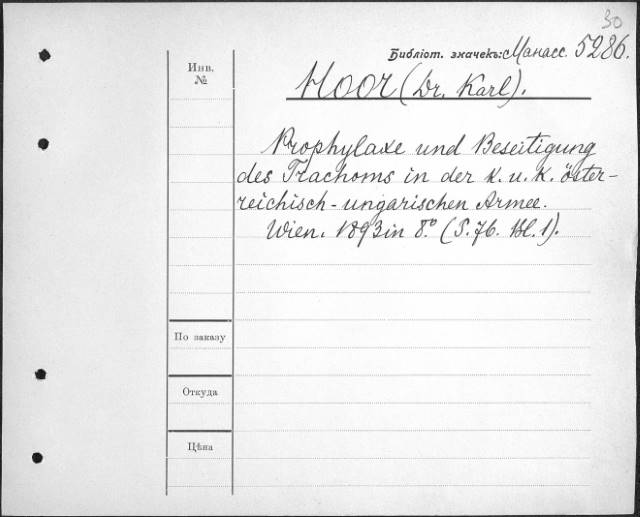 30
Библіот. значекъ: Манасс. 5286.
Инв.
№
Hoor (Dr. Karl).
Prophylaxe und Beseitigung
des Trachoms in der k. u. k. öster-
reichisch-ungarischen Armee.
Wien. 1893 in 8.° (S. 76. Bl. 1).
По заказу
Откуда
Цѣна